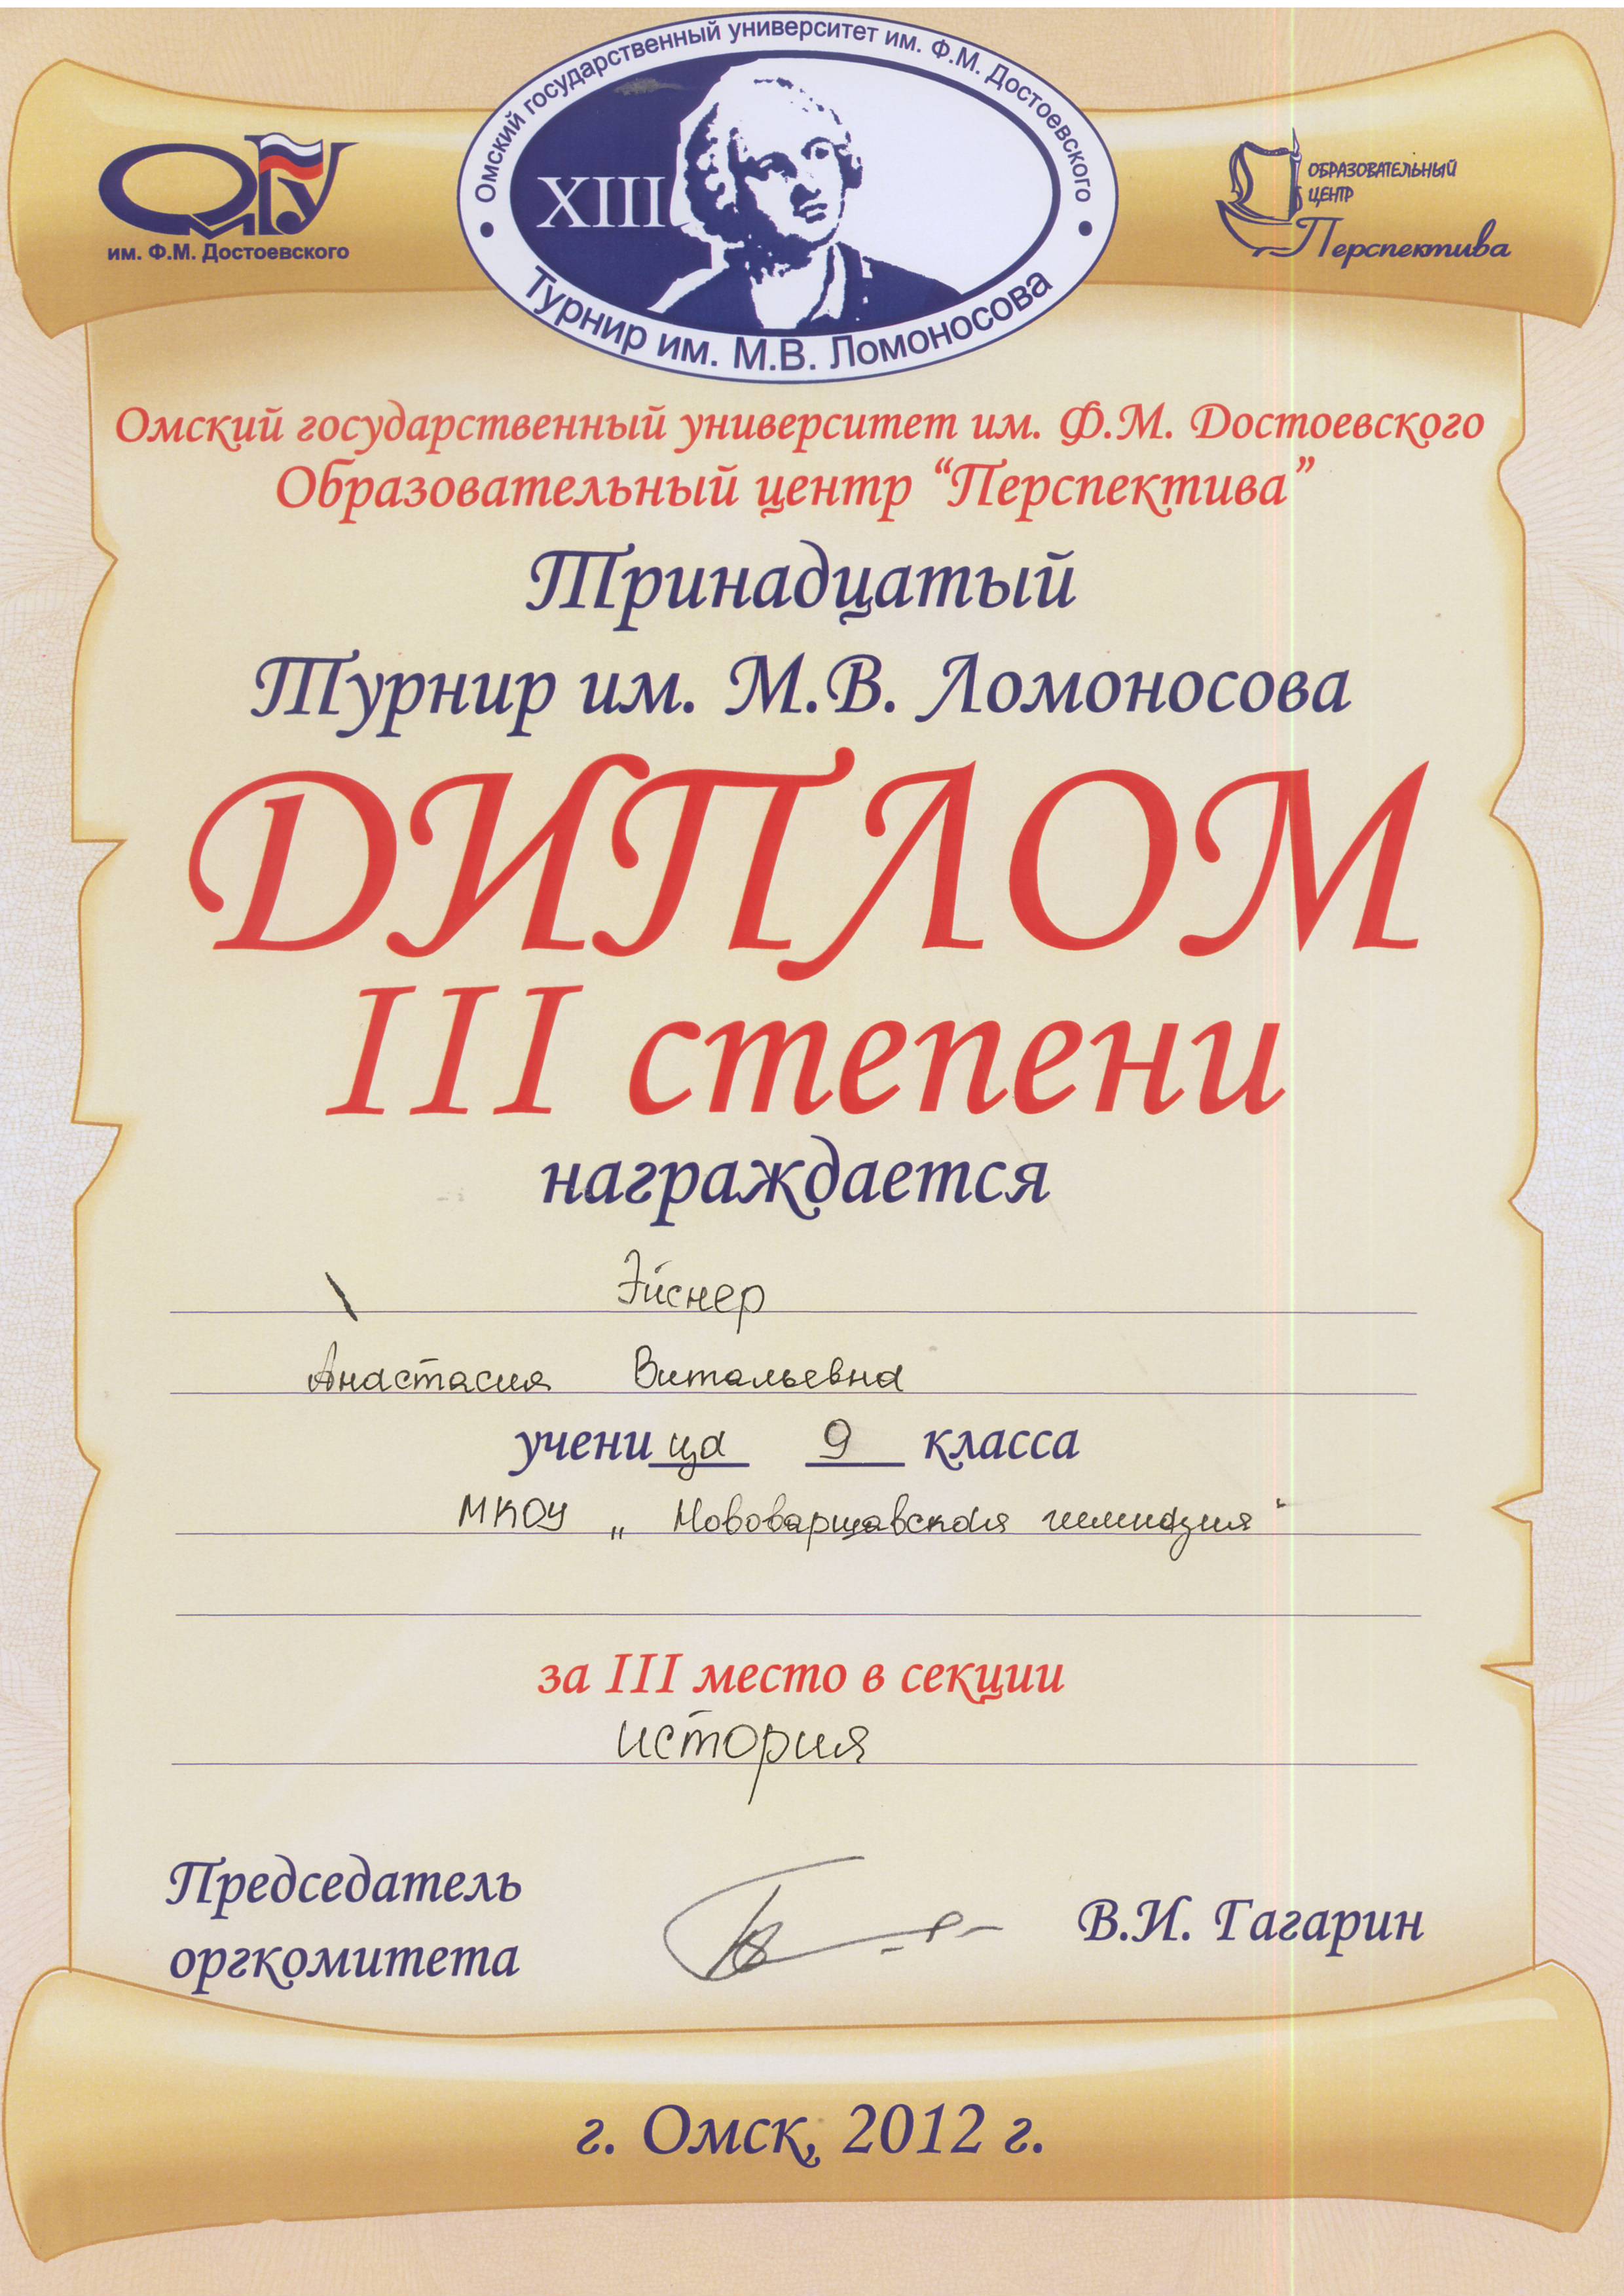 Омский государственный университет им. Ф.М. Достоевского
XIII
Турнир им. М.В. Ломоносова
ОмГУ
им. Ф.М. Достоевского
ОБРАЗОВАТЕЛЬНЫЙ
ЦЕНТР
Перспектива
Омский государственный университет им. Ф.М. Достоевского
Образовательный центр “Перспектива”
Тринадцатый
Турнир им. М.В. Ломоносова
ДИПЛОМ
III степени
награждается
Эйснер
Анастасия Витальевна
учени ца 9 класса
МКОУ „Нововаршавская гимназия“
за III место в секции
история
Председатель
оргкомитета
В.И. Гагарин
г. Омск, 2012 г.